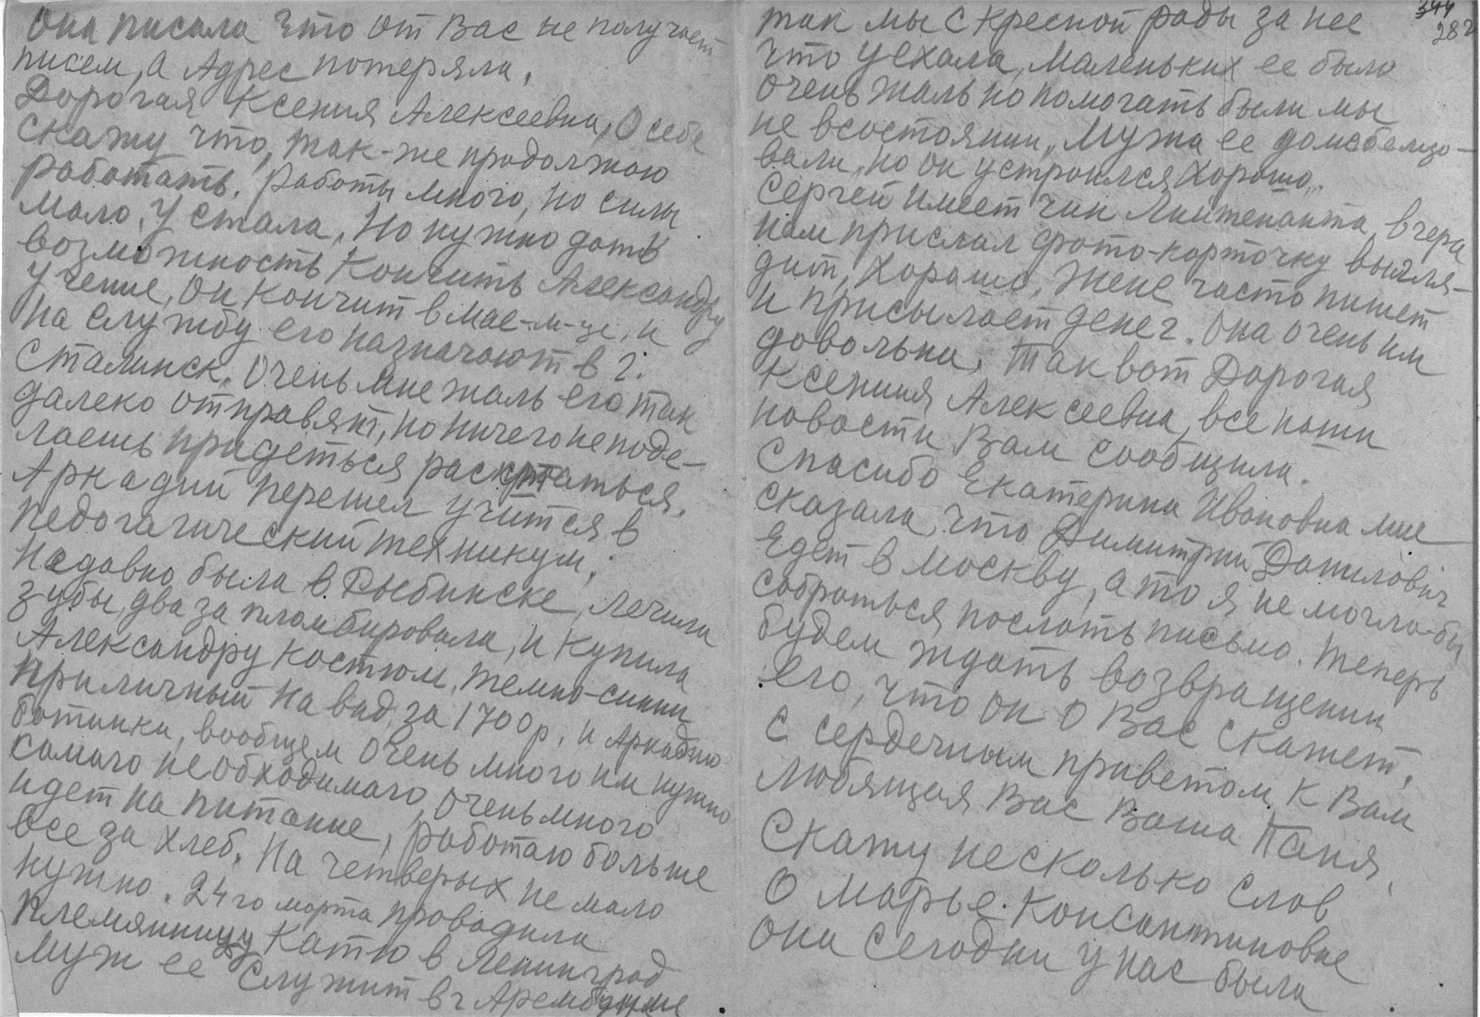 Она писала что от Вас не получает
писем, а Адрес потеряла,
Дорогая Ксения Алексеевна, О себе
скажу что, так-же продолжаю
работать. работы много, но силы
мало. Устала, Но нужно дать
возможность Кончить Александру
учение, он кончит в мае-м-це, и
на службу его назначают в г.
Сталинск. Очень мне жаль его так
далеко отправят, но ничего не поде-
лаешь придеться раскутаться.
Аркадий перешел учится в
педогагический техникум,
Недавно была в Рыбинске, лечила
зубы, два запломбировала, и купила
Александру костюм, темно-синий
приличный на вид, за 1700р. и Аркадию
ботинки, вообщем очень много им нужно
самаго необходимаго, очень много
идет на питание, работаю больше
все за хлеб. На четверых не мало
нужно. 24го марта проводила
племянницу Катю в Ленинград
муж ее служит в г
так мы с кресной рады за нее
344
282
что уехала, Маленьких ее было
очень жаль но помогать были мы
не всостоянии, Мужа ее
вали, но он устроился хорошо.
Сергей имеет чин Лиитенанта, вчера
нам прислал фото-карточку выгля-
дит, Хорошо, Жене часто пишет
и присылает денег. Она очень им
довольна. Так вот Дорогая
Ксения Алексеевна, все наши
новости Вам сообщила.
Спасибо Екатерина Ивановна мне
сказала, что Димитрий Данилович
Едет в Москву, а то я не могла-бы
собраться послать письмо. Теперь
будем ждать возвращении
его, что он о Вас скажет.
С сердечным приветом к Вам
любящая Вас Ваша Паня,
Скажу несколько слов
О Марье Консантиновне
Она сегодни у нас была